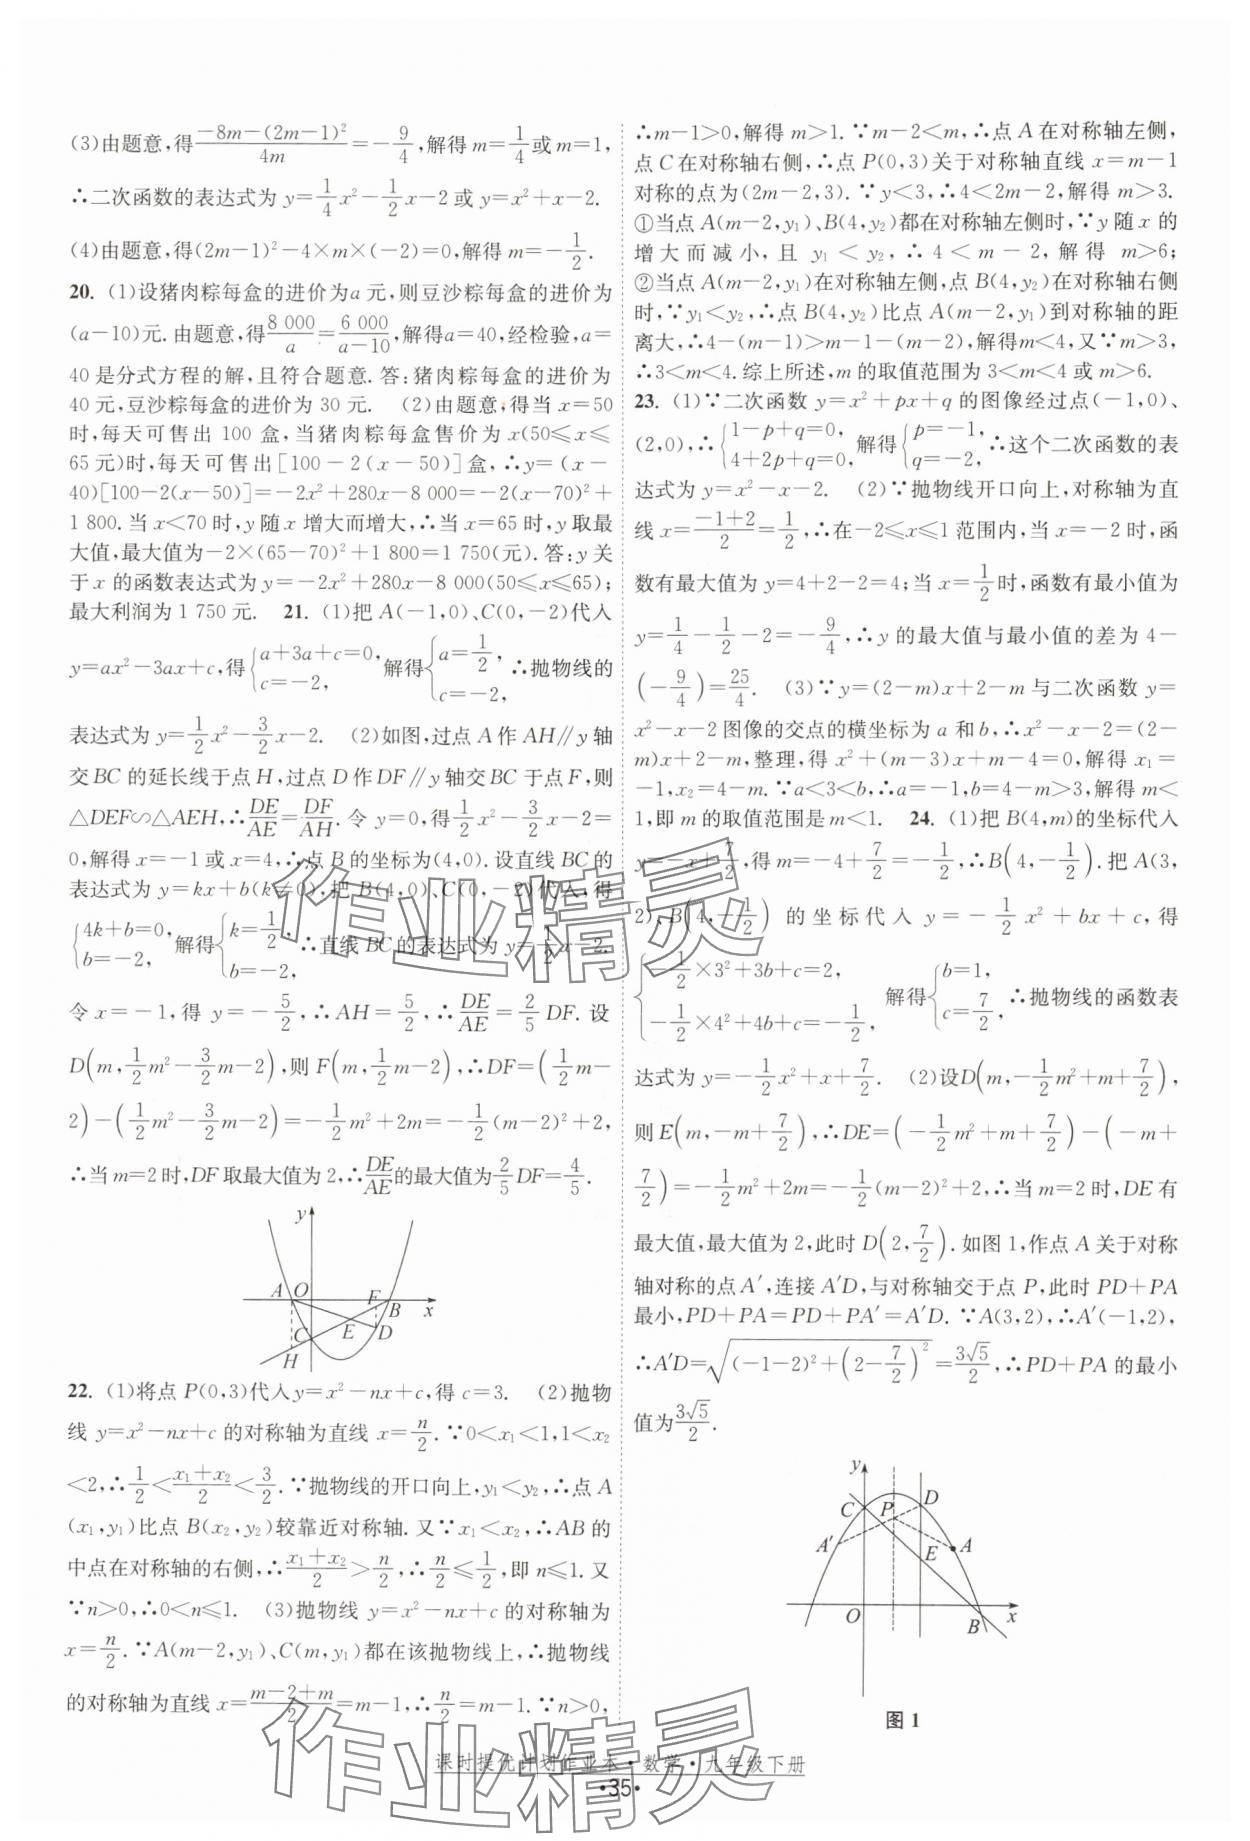 (3)由题意,得\frac{-8m-(2m-1)^2}{4m}=-\frac{9}{4},解得m=\frac{1}{4}或m=1,
∴二次函数的表达式为 y=\frac{1}{4}x²-\frac{1}{2}x-2或 y=x²+x-2.
(4)由题意,得(2m-1)²-4×m×(-2)=0,解得m=-\frac{1}{2}.
20. (1)设猪肉粽每盒的进价为a元,则豆沙粽每盒的进价为
(a-10)元.由题意,得\frac{8 000}{a}=\frac{6 000}{a-10},解得a=40,经检验,a=
40是分式方程的解,且符合题意.答:猪肉粽每盒的进价为
40元,豆沙粽每盒的进价为30元. (2)由题意,得当x=50
时,每天可售出100盒,当猪肉粽每盒售价为x(50≤x≤
65元)时,每天可售出[100-2(x-50)]盒,∴y=(x-
40)[100-2(x-50)]=-2x²+280x-8 000=-2(x-70)²+
1 800.当x<70时,y随x增大而增大,∴当x=65时,y取最
大值,最大值为-2×(65-70)²+1 800=1 750(元).答:y关
于x的函数表达式为y=-2x²+280x-8 000(50≤x≤65);
最大利润为1 750元. 21. (1)把A(-1,0)、C(0,-2)代入
y=ax²-3ax+c,得{a+3a+c=0, c=-2, 解得{a=\frac{1}{2}, c=-2, ∴抛物线的
表达式为y=\frac{1}{2}x²-\frac{3}{2}x-2. (2)如图,过点A作AH∥y轴
交BC的延长线于点H,过点D作DF∥y轴交BC于点F,则
△DEF∽△AEH,∴\frac{DE}{AE}=\frac{DF}{AH}.令y=0,得\frac{1}{2}x²-\frac{3}{2}x-2=
0,解得x=-1或x=4,∴点B的坐标为(4,0).设直线BC的
表达式为y=kx+b(k≠0),把B(4,0)、C(0,-2)代入,得
{4k+b=0, b=-2, 解得{k=\frac{1}{2}, b=-2, ∴直线BC的表达式为y=\frac{1}{2}x-2.
令x=-1,得y=-\frac{5}{2},∴AH=\frac{5}{2},∴\frac{DE}{AE}=\frac{2}{5}DF.设
D(m,\frac{1}{2}m²-\frac{3}{2}m-2),则F(m,\frac{1}{2}m-2),∴DF=(\frac{1}{2}m-
2)-(\frac{1}{2}m²-\frac{3}{2}m-2)=-\frac{1}{2}m²+2m=-\frac{1}{2}(m-2)²+2,
∴当m=2时,DF取最大值为2,∴\frac{DE}{AE}的最大值为\frac{2}{5}DF=\frac{4}{5}.
y
A O F B x
C E D
H
22. (1)将点P(0,3)代入y=x²-nx+c,得c=3. (2)抛物
线y=x²-nx+c的对称轴为直线x=\frac{n}{2}.∵0<x₁<1,1<x₂
<2,∴\frac{1}{2}<\frac{x₁+x₂}{2}<\frac{3}{2}.∵抛物线的开口向上,y₁<y₂,∴点A
(x₁,y₁)比点B(x₂,y₂)较靠近对称轴.又∵x₁<x₂,∴AB的
中点在对称轴的右侧,∴\frac{x₁+x₂}{2}>\frac{n}{2},∴\frac{n}{2}≤\frac{1}{2},即n≤1.又
∵n>0,∴0<n≤1. (3)抛物线y=x²-nx+c的对称轴为
x=\frac{n}{2}.∵A(m-2,y₁)、C(m,y₁)都在该抛物线上,∴抛物线
的对称轴为直线x=\frac{m-2+m}{2}=m-1,∴\frac{n}{2}=m-1.∵n>0,
∴m-1>0,解得m>1.∵m-2<m,∴点A在对称轴左侧,
点C在对称轴右侧,∴点P(0,3)关于对称轴直线x=m-1
对称的点为(2m-2,3).∵y<3,∴4<2m-2,解得m>3.
①当点A(m-2,y₁)、B(4,y₂)都在对称轴左侧时,∵y随x的
增大而减小,且y₁<y₂,∴4<m-2,解得m>6;
②当点A(m-2,y₁)在对称轴左侧,点B(4,y₂)在对称轴右侧
时,∵y₁<y₂,∴点B(4,y₂)比点A(m-2,y₁)到对称轴的距
离大,∴4-(m-1)>m-1-(m-2),解得m<4,又∵m>3,
∴3<m<4.综上所述,m的取值范围为3<m<4或m>6.
23. (1)∵二次函数y=x²+px+q的图像经过点(-1,0)、
(2,0),∴{1-p+q=0, 4+2p+q=0, 解得{p=-1, q=-2, ∴这个二次函数的表
达式为y=x²-x-2. (2)∵抛物线开口向上,对称轴为直
线x=\frac{-1+2}{2}=\frac{1}{2},∴在-2≤x≤1范围内,当x=-2时,函
数有最大值为y=4+2-2=4;当x=\frac{1}{2}时,函数有最小值为
y=\frac{1}{4}-\frac{1}{2}-2=-\frac{9}{4},∴y的最大值与最小值的差为4-
(-\frac{9}{4})=\frac{25}{4}. (3)∵y=(2-m)x+2-m与二次函数y=
x²-x-2图像的交点的横坐标为a和b,∴x²-x-2=(2-
m)x+2-m,整理,得x²+(m-3)x+m-4=0,解得x₁=
-1,x₂=4-m.∵a<3<b,∴a=-1,b=4-m>3,解得m<
1,即m的取值范围是m<1. 24. (1)把B(4,m)的坐标代入
y=-x+\frac{7}{2},得m=-4+\frac{7}{2}=-\frac{1}{2},∴B(4,-\frac{1}{2}).把A(3,
2)、B(4,-\frac{1}{2})的坐标代入y=-\frac{1}{2}x²+bx+c,得
{-\frac{1}{2}×3²+3b+c=2, -\frac{1}{2}×4²+4b+c=-\frac{1}{2}, 解得{b=1, c=\frac{7}{2}, ∴抛物线的函数表
达式为y=-\frac{1}{2}x²+x+\frac{7}{2}. (2)设D(m,-\frac{1}{2}m²+m+\frac{7}{2}),
则E(m,-m+\frac{7}{2}),∴DE=(-\frac{1}{2}m²+m+\frac{7}{2})-(-m+
\frac{7}{2})=-\frac{1}{2}m²+2m=-\frac{1}{2}(m-2)²+2,∴当m=2时,DE有
最大值,最大值为2,此时D(2,\frac{7}{2}).如图1,作点A关于对称
轴对称的点A′,连接A′D,与对称轴交于点P,此时PD+PA
最小,PD+PA=PD+PA′=A′D.∵A(3,2),∴A′(-1,2),
∴A′D=\sqrt{(-1-2)²+(2-\frac{7}{2})²}=\frac{3\sqrt{5}}{2},∴PD+PA的最小
值为\frac{3\sqrt{5}}{2}.
y
C P D
A′ E A
O B x
图1
课时提优计划作业本·数学·九年级下册
·35·
作业精灵
作业精灵